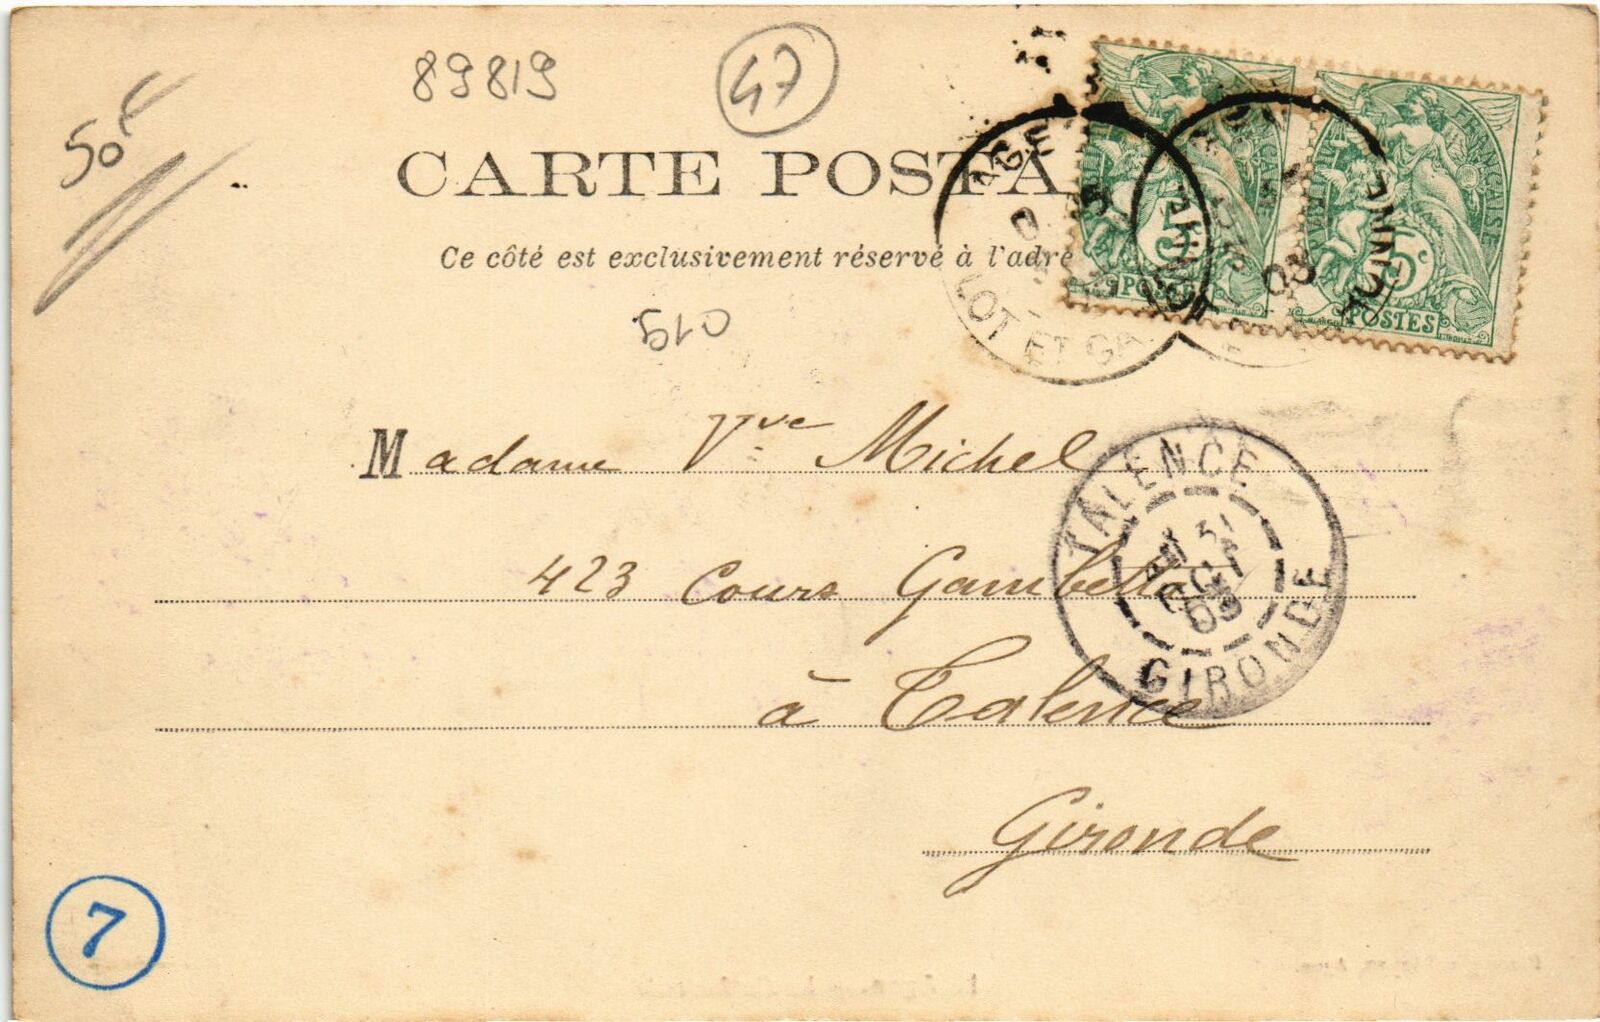 89819
47
50F
CARTE POSTA
Ce côté est exclusivement réservé à l'adre
510
AGEN
LOT ET GA
03
5c
POSTES
POSTES
Madame Vve Michel
423 Cours Gambetta
à Talence
Gironde
TALENCE
OCT
03
GIRONDE
7